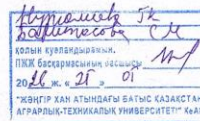 Нуралиева Г.К
Бахитжасова С М
қолын куәландырамын.
ПЖЖ басқармасының бастығы
20 26 ж. « 26 » 01
"ЖӘҢГІР ХАН АТЫНДАҒЫ БАТЫС ҚАЗАҚСТАН
АГРАРЛЫҚ-ТЕХНИКАЛЫҚ УНИВЕРСИТЕТІ" КеАҚ